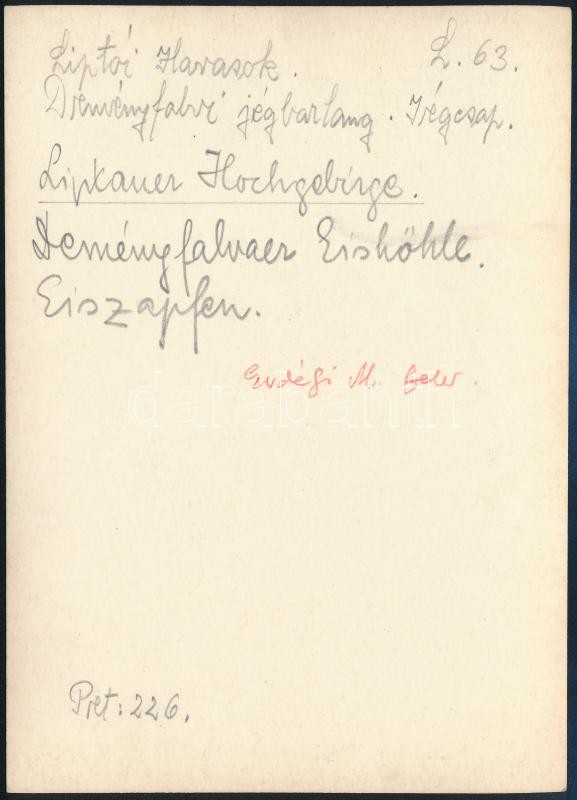 Liptói Havasok. L. 63.
Dreményfalvi jégbarlang. Jégcsap.
Liptauer Hochgebirge.
Deményfalvaer Eishöhle.
Eiszapfen.
Erdégi M. Béla.
darabanth
Pret: 226.